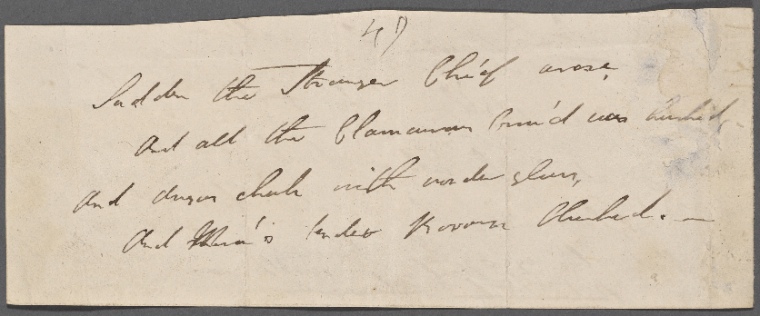 47
Sudden the Stranger Chief arose,
And all the Clamarous Crow'd was hushed,
And cheek with wonder glows,
And tender blushed. —